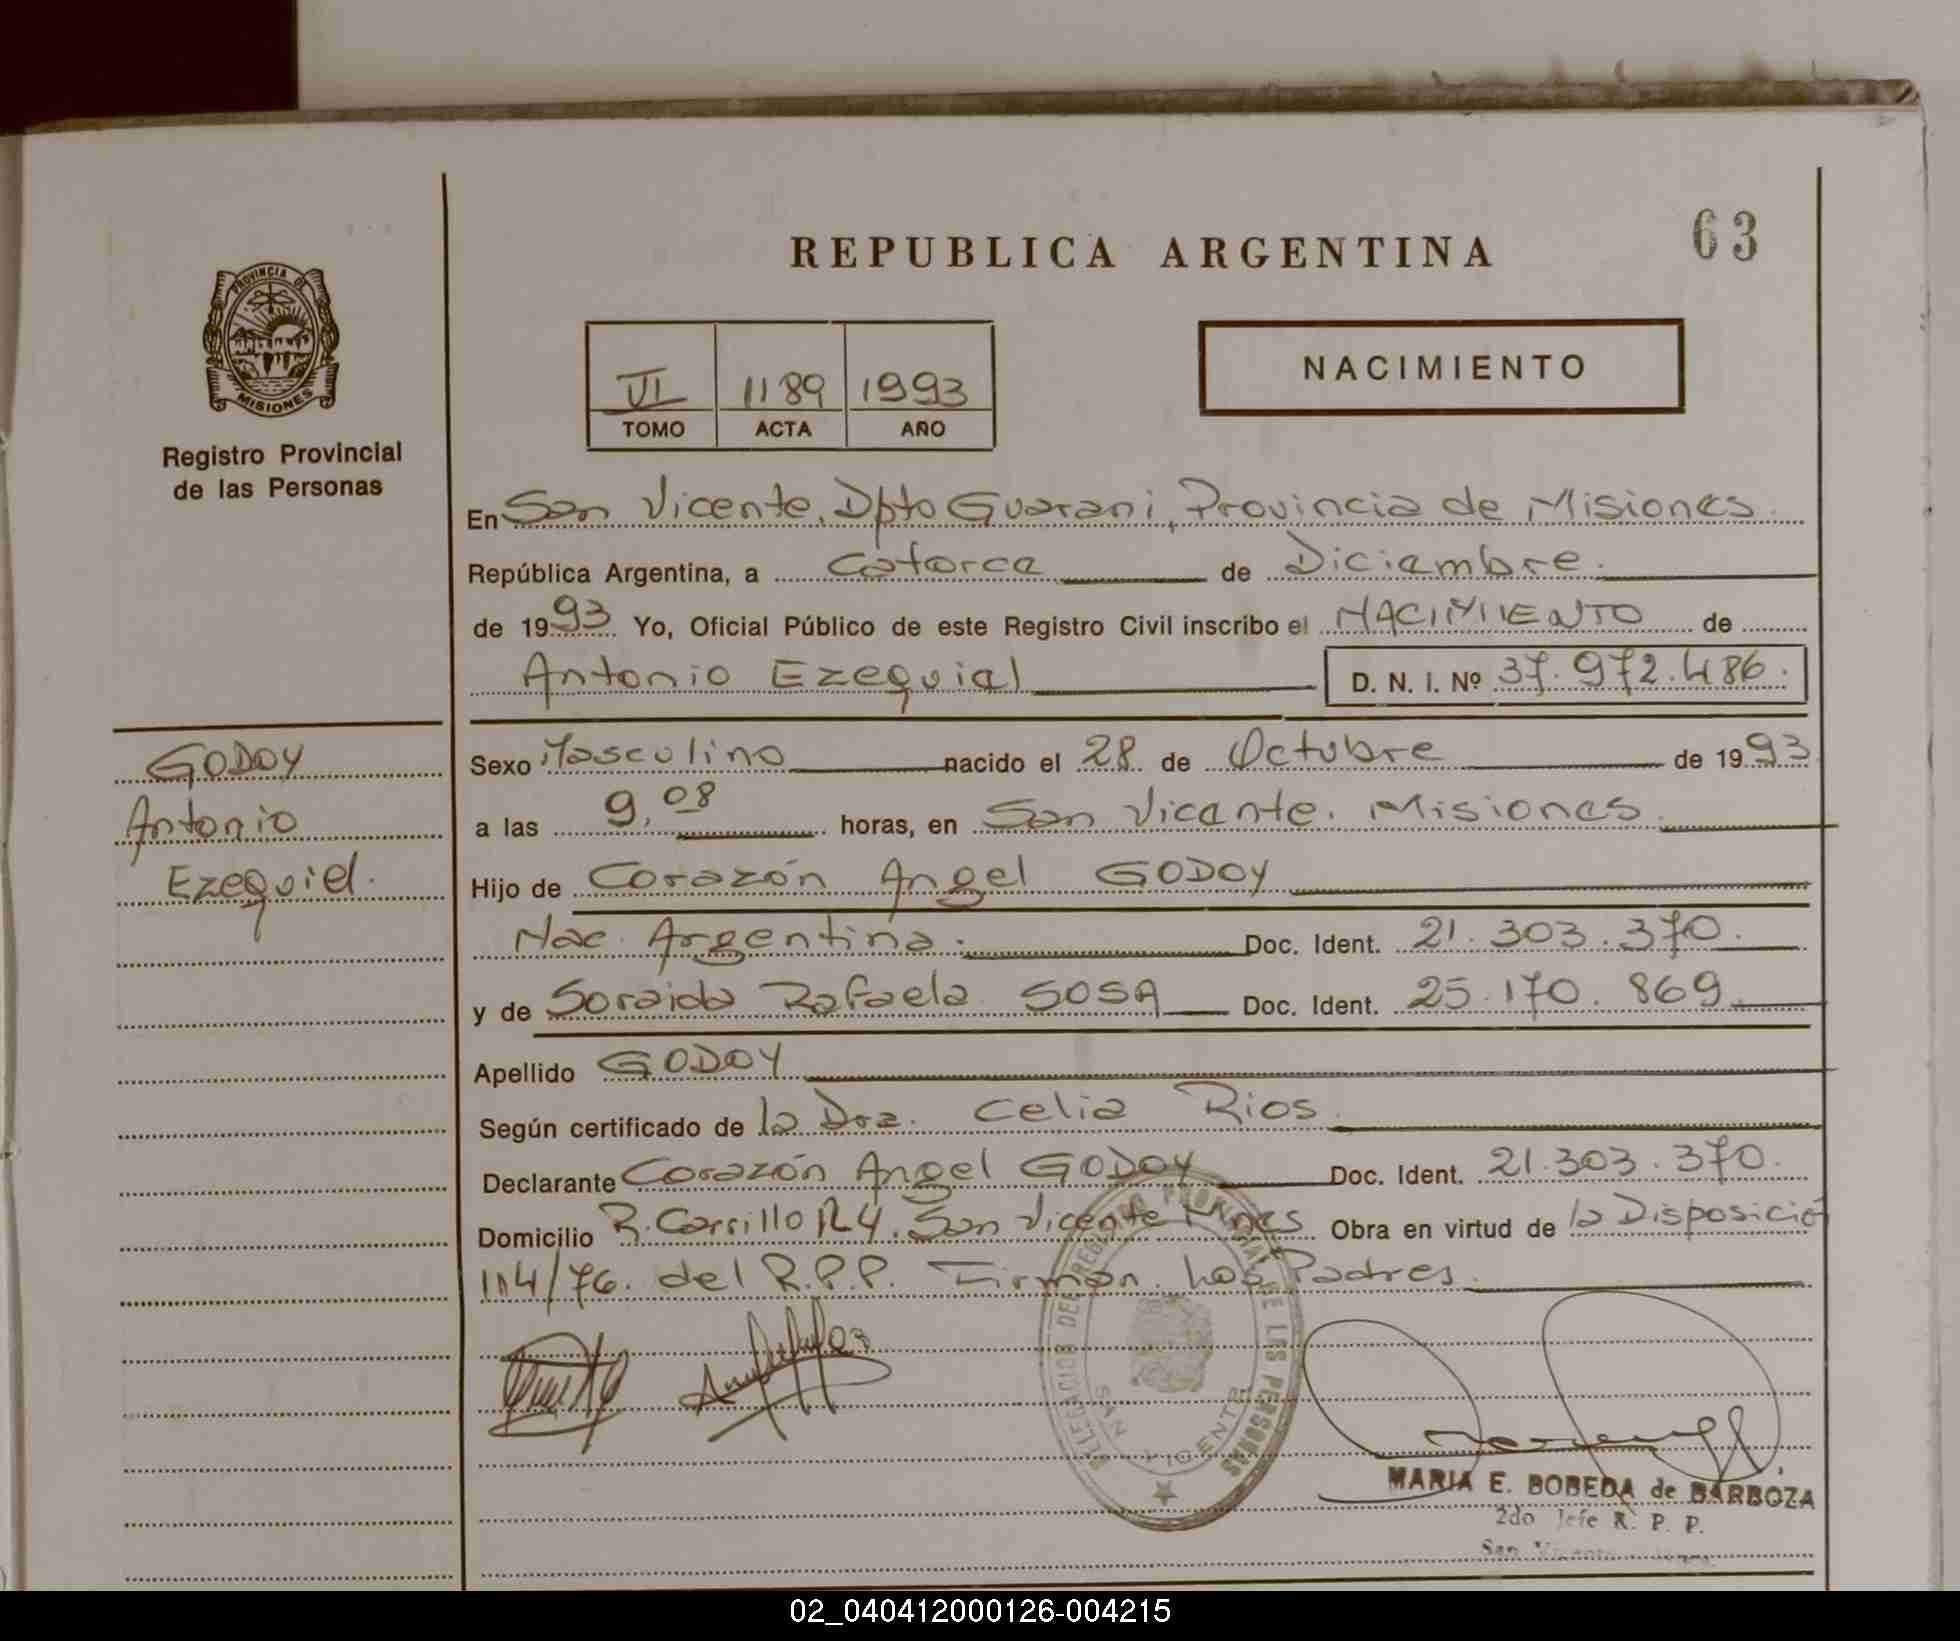 REPUBLICA ARGENTINA
63
PROVINCIA DE
MISIONES
Registro Provincial
de las Personas
VI 1189 1993
TOMO ACTA AÑO
NACIMIENTO
En San Vicente, Dpto Guarani, Provincia de Misiones
República Argentina, a Catorce de Diciembre.
de 1993 Yo, Oficial Público de este Registro Civil inscribo el NACIMIENTO de
Antonio Ezequiel D. N. I. Nº 37.972.486.
GODOY
Antonio
Ezequiel.
Sexo Masculino nacido el 28 de Octubre de 1993
a las 9,08 horas, en San Vicente. Misiones.
Hijo de Corazón Angel GODOY
Nac. Argentina. Doc. Ident. 21.303.370.
y de Soraida Rafaela SOSA Doc. Ident. 25.170.869
Apellido GODOY
Según certificado de la Dra. Celia Rios.
Declarante Corazón Angel GODOY Doc. Ident. 21.303.370.
Domicilio R. Carrillo 124. San Vicente Mnes Obra en virtud de la Disposició
114/76. del R.P.P. Firman. Los Padres.
DELEGACION DEL REGISTRO PROVINCIAL DE LAS PERSONAS
SAN VICENTE
MARIA E. BOBEDA de BARBOZA
2do Jefe R. P. P.
San Vicente
02_040412000126-004215